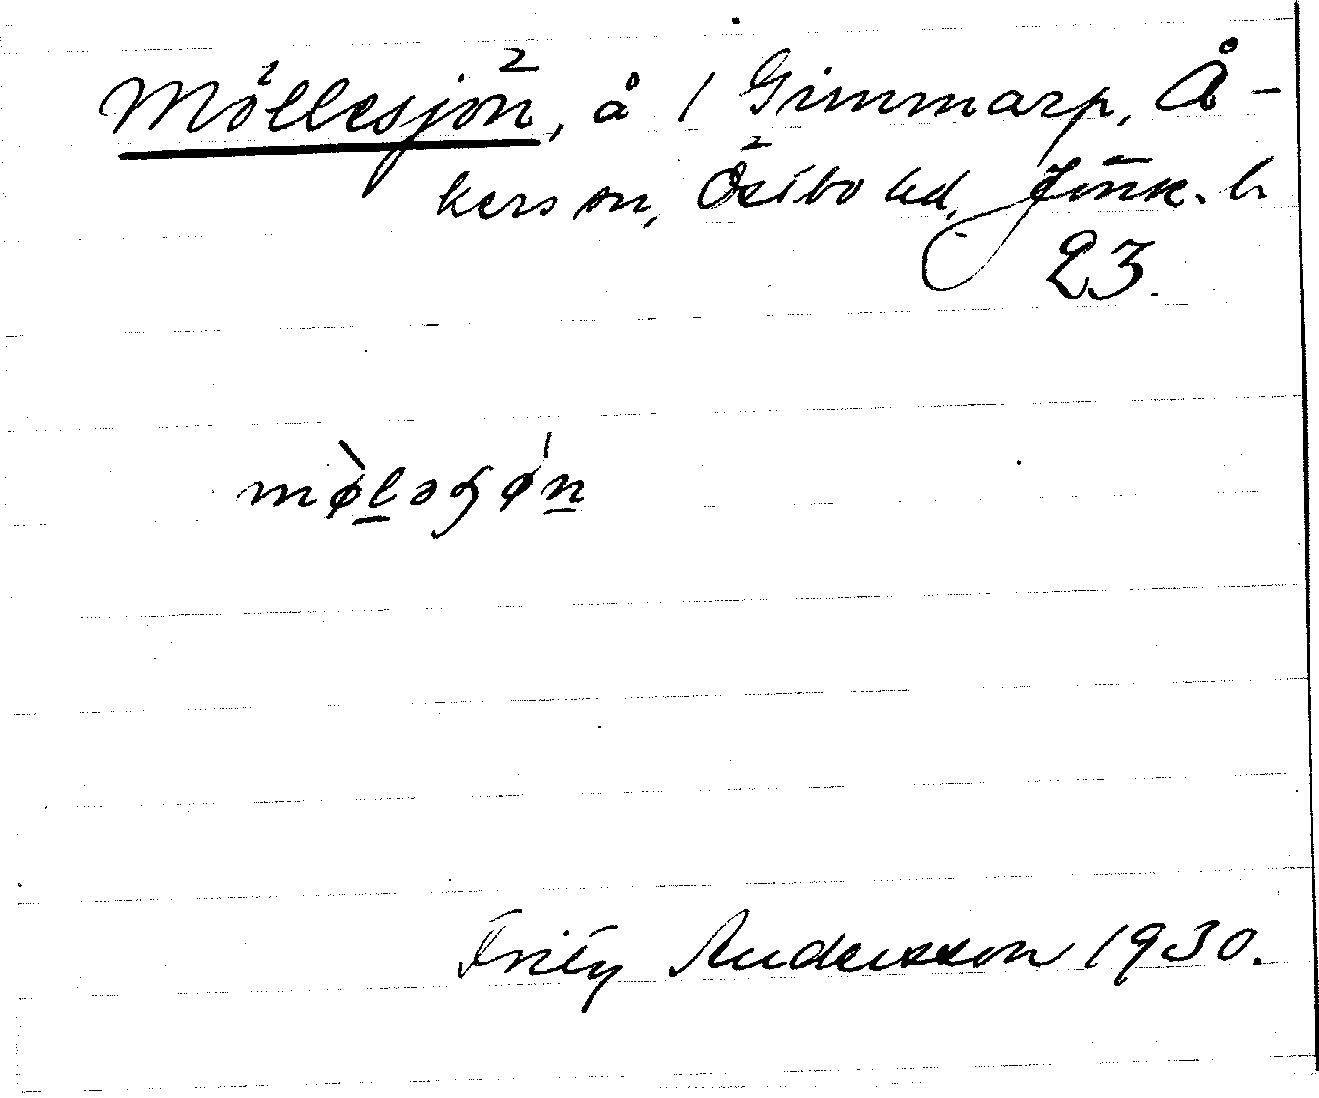 Möllesjön, å / Gimmarp, Å-
kers sn, Östbo hd, Jönk. l.
23.
mø̀ləɧǿn
Fritz Andersson 1930.